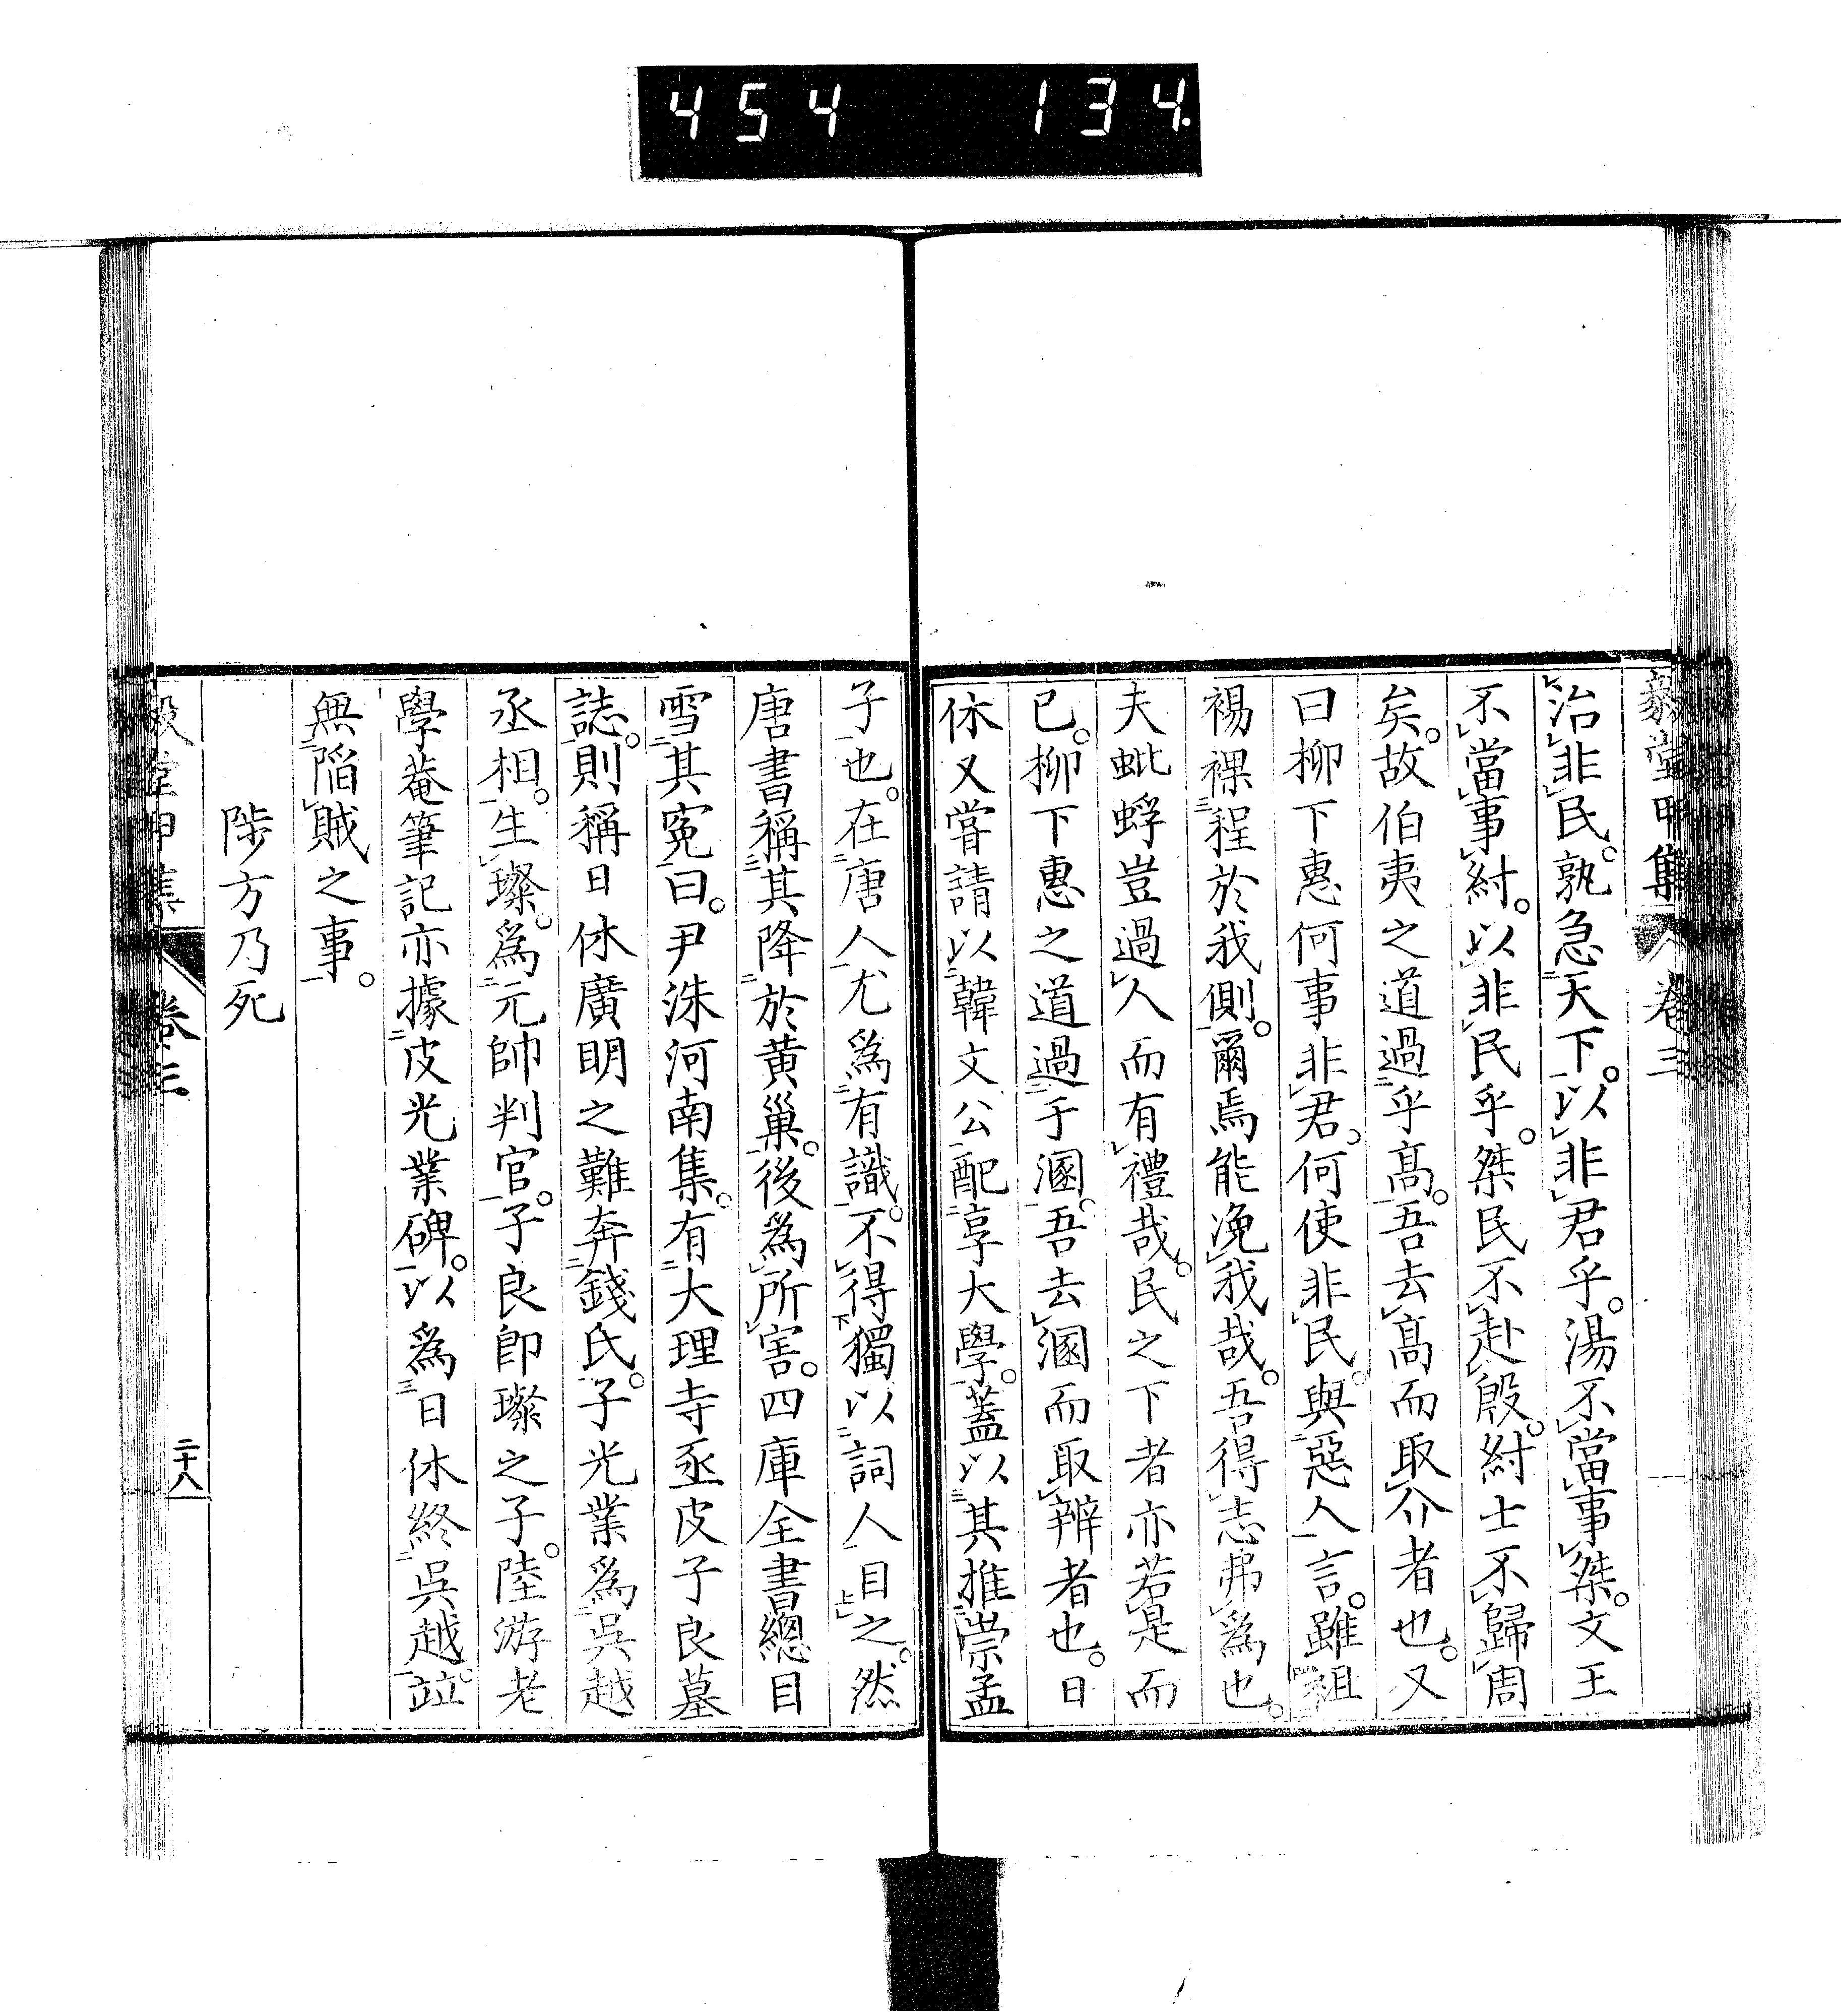 454 134.
毅堂甲集 卷三
治非民。孰急天下。以非君乎。湯不當事桀。文王
不當事紂。以非民乎。桀民不赴殷。紂士不歸周
矣。故伯夷之道過乎高。吾去高而取介者也。又
曰柳下惠何事非君。何使非民。與惡人言。雖袒
裼裸程於我側。爾焉能浼我哉。吾得志弗爲也。
夫蚍蜉豈過人而有禮哉。民之下者亦若是而
已。柳下惠之道過于溷。吾去溷而取辨者也。日
休又嘗請以韓文公配享大學。蓋以其推崇孟
子也。在唐人尤爲有識。不得獨以詞人目之。然
唐書稱其降於黄巢。後爲所害。四庫全書總目
雪其冤曰。尹洙河南集。有大理寺丞皮子良墓
誌。則稱日休廣明之難奔錢氏。子光業爲吳越
丞相。生璨。爲元帥判官。子良即璨之子。陸游老
學菴筆記亦據皮光業碑。以爲日休終吳越。竝
無陷賊之事。
陟方乃死
毅堂甲集 卷三 二十八